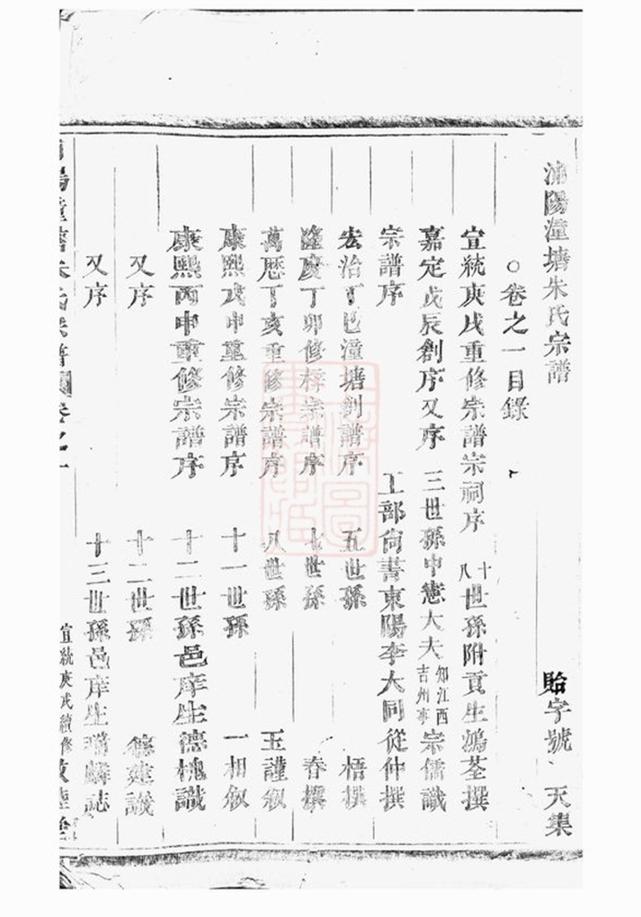 浦陽潼塘朱氏宗譜 貽字號 天集
○卷之一目錄
宣統庚戌重修宗譜宗祠序 十八世孫附貢生鴻荃撰
嘉定戊辰創序又序 三世孫中憲大夫知江西吉州事宗儒識
宗譜序 工部尚書東陽李大同從仲撰
宏治丁巳潼塘創譜序 五世孫 梧撰
隆慶丁卯修梓宗譜序 七世孫 春撰
萬歷丁亥重修宗譜序 八世孫 玉謹叙
康熙戊申重修宗譜序 十一世孫 一相叙
康熙丙申重修宗譜序 十二世孫邑庠生德槐識
又序 十二世孫 建譔
又序 十三世孫邑庠生 麟誌
陽潼塘朱氏宗譜 卷之一 宣統庚戌續修 敦睦堂